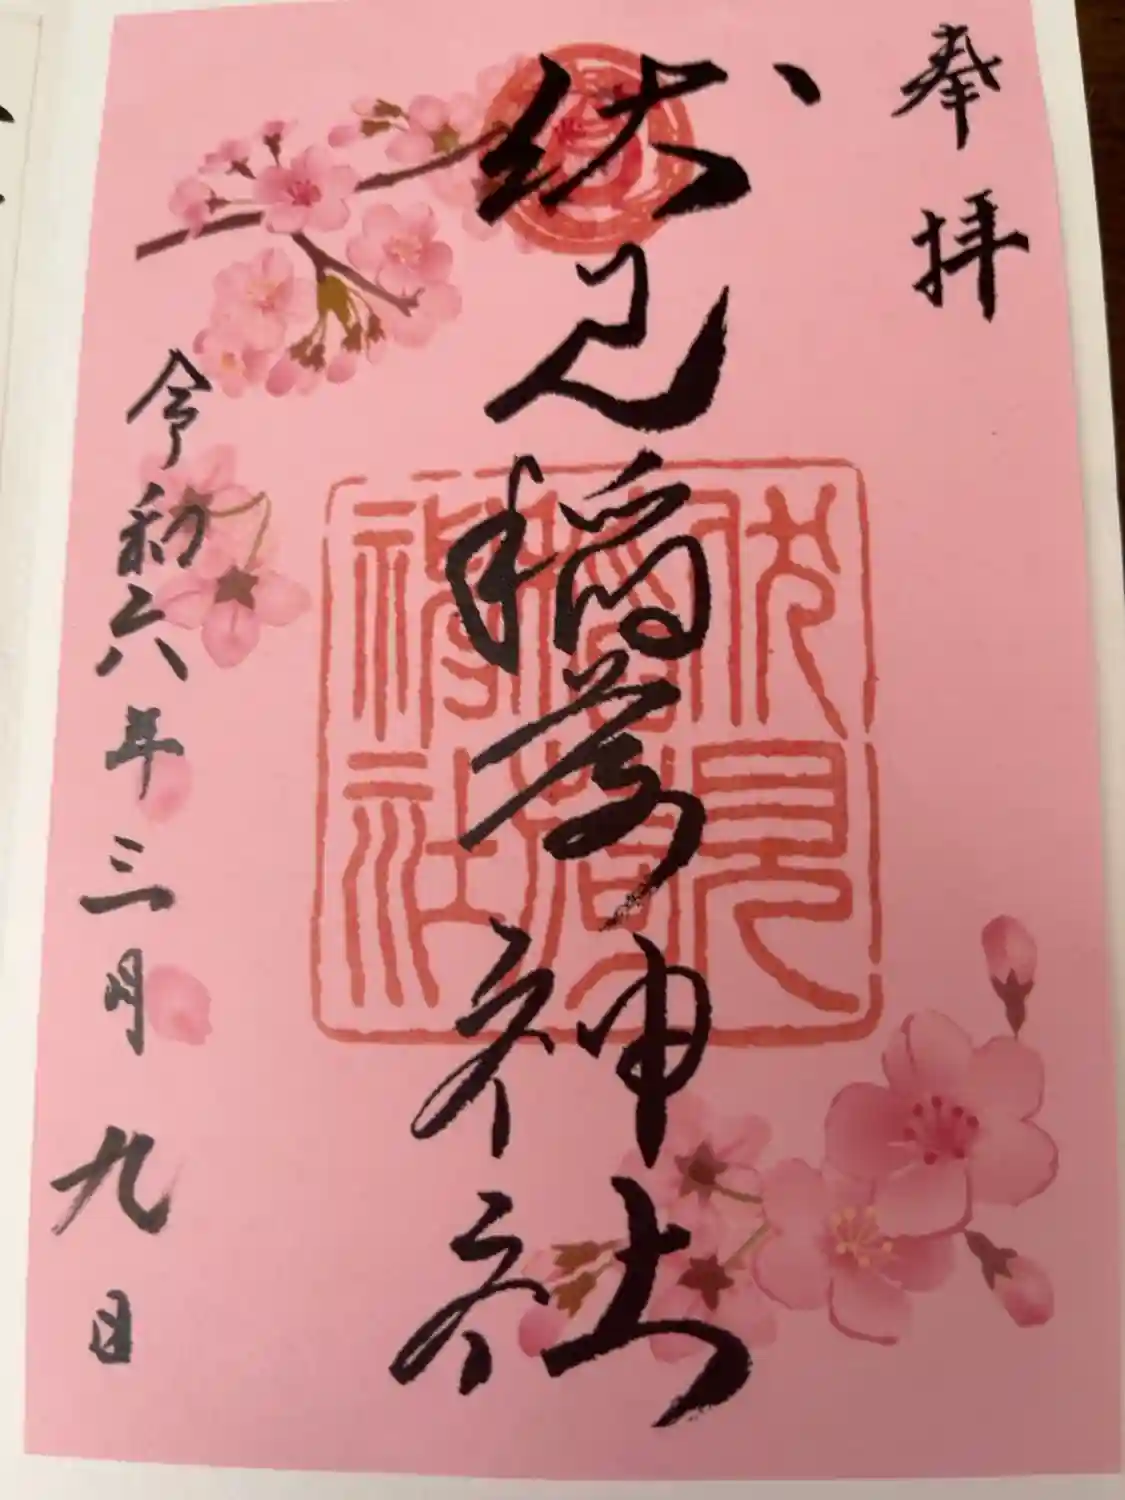 奉拝
伏見稲荷神社
伏見
稲荷
神社
令和六年三月九日